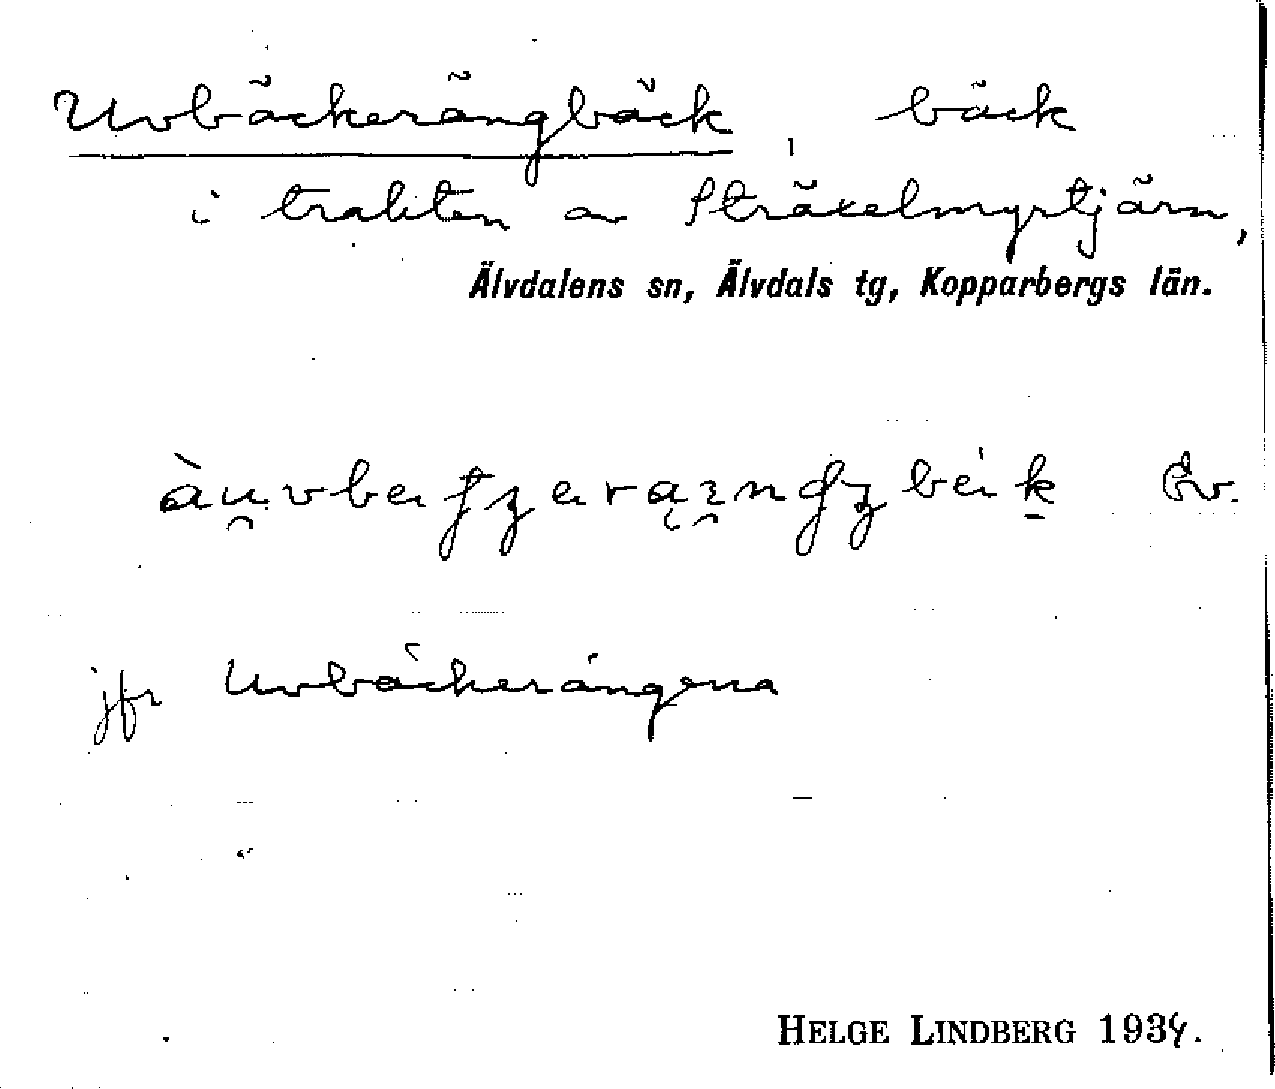 Uvbäckerängbäck, bäck
i trakten av Sträxelmyrtjärn,
Älvdalens sn, Älvdals tg, Kopparbergs län.
Åv.
jfr Uvbäckerängena
HELGE LINDBERG 1934.